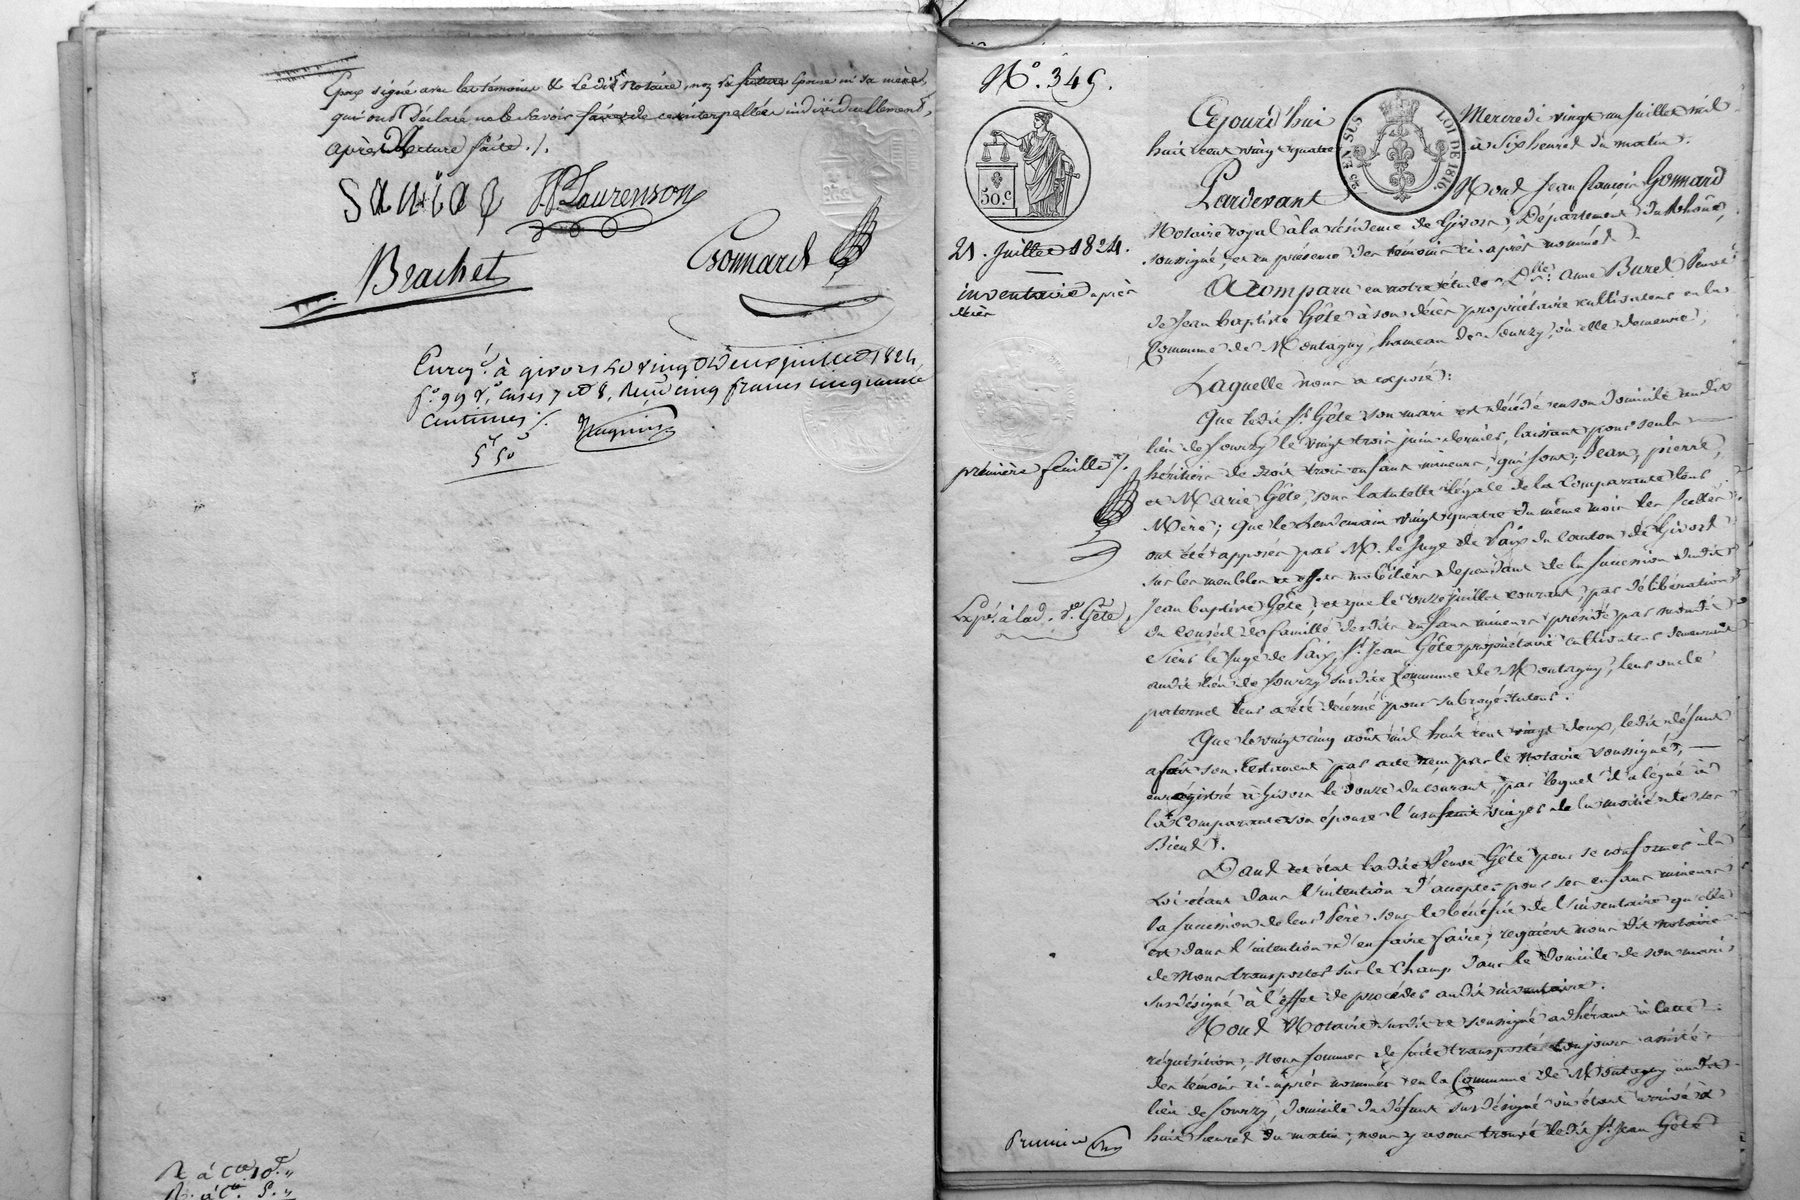 Epoux signé avec les témoins & le dit Notaire, non la future Epouse ni sa mère
qui ont déclaré ne le savoir faire de ce interpellées individuellement,
après lecture faite ./.
JP Laurenson
Brachet
Gonnard
Enrgé. à givors le vingt deux juillet 1824
fo. 99 Vo, cases 7 et 8, Reçu cinq francs cinquante
centimes ./.
5f 50c
No. 349.
50. C
25 EN SUS
LOI DE 1816
21. Juillet 1824.
inventaire après
décès
première feuille ./.
Expé. à lad. ve. Gête
Cejourd'hui Mercredi vingt un juillet mil
huit cent vingt quatre à six heures du matin.
Pardevant Nous Jean françois Gonnard
Notaire royal à la résidence de Givors, Département du Rhône,
soussigné, et en présence des témoins ci-après nommés.
A comparu en notre étude Dlle. Anne Burel Veuve
de Jean Baptiste Gête à son décès propriétaire cultivateur en la
Commune de Montagny, hameau de Sourzy, où elle demeure,
Laquelle nous a exposé:
Que ledit Sr. Gête son mari est décédé en son domicile audit
lieu de Sourzy le vingt trois juin dernier, laissant pour seuls
héritiers de droit trois enfans mineurs, qui sont, Jean, pierre,
et Marie Gête, sous la tutelle légale de la Comparante leur
Mère; que le lendemain vingt quatre du même mois les scellés
ont été apposés par M. le Juge de Paix du canton de Givors
sur les meubles et effets mobiliers dépendant de la succession dudit
Jean Baptiste Gête, et que le onze juillet courant, par délibération
du conseil de famille desdits enfans mineurs présidé par mondit
Sieur le Juge de Paix, Sr. Jean Gête propriétaire cultivateur demeurant
audit lieu de Sourzy susdite Commune de Montagny, leur oncle
paternel leur a été décerné pour subrogé-tuteur.
Que le vingt cinq août mil huit cent vingt deux, ledit défunt
a fait son testament par acte reçu par le Notaire soussigné,
enregistré à Givors le douze du courant, par lequel il a légué à
la Comparante son épouse l'usufruit viager de la moitié de ses
Biens.
Dans cet état ladite Veuve Gête pour se conformer à la
Loi étant dans l'intention d'accepter pour ses enfans mineurs
la succession de leur Père sous le bénéfice de l'inventaire qu'elle
est dans l'intention d'en faire faire, requiert nous dit notaire
de Nous transporter sur le champ dans le domicile de son mari
susdésigné à l'effet de procéder audit inventaire.
Nous Notaire susdit et soussigné adhérant à cette
réquisition, Nous sommes de suite transporté toujours assisté
des témoins ci-après nommés en la Commune de Montagny audit
lieu de Sourzy, domicile du défunt susdésigné où étant arrivé à
huit heures du matin, nous y avons trouvé ledit Sr. Jean Gête